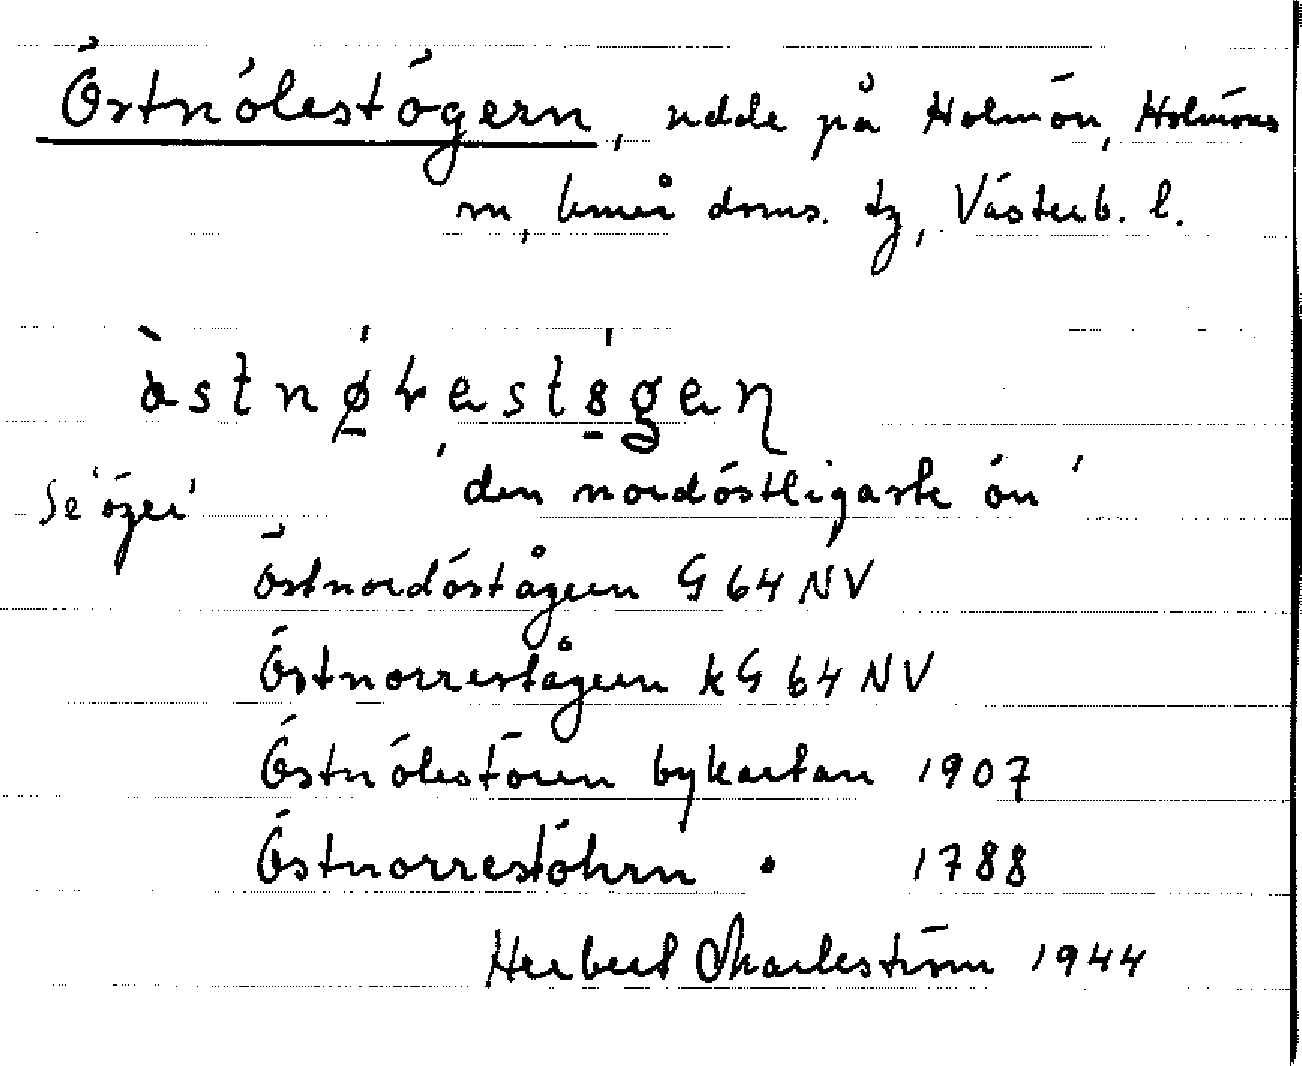 Östnölestögern, udde på Holmön, Holmöns
m, Umeå doms. tg, Västerb. l.
'den nordöstligaste ön'
Se 'öger'
Östnordöstågern G 64 NV
Östnorrestågern kG 64 NV
Östnölestören bykartan 1907
Östnorrestöhrn " 1788
Herbert Markström 1944